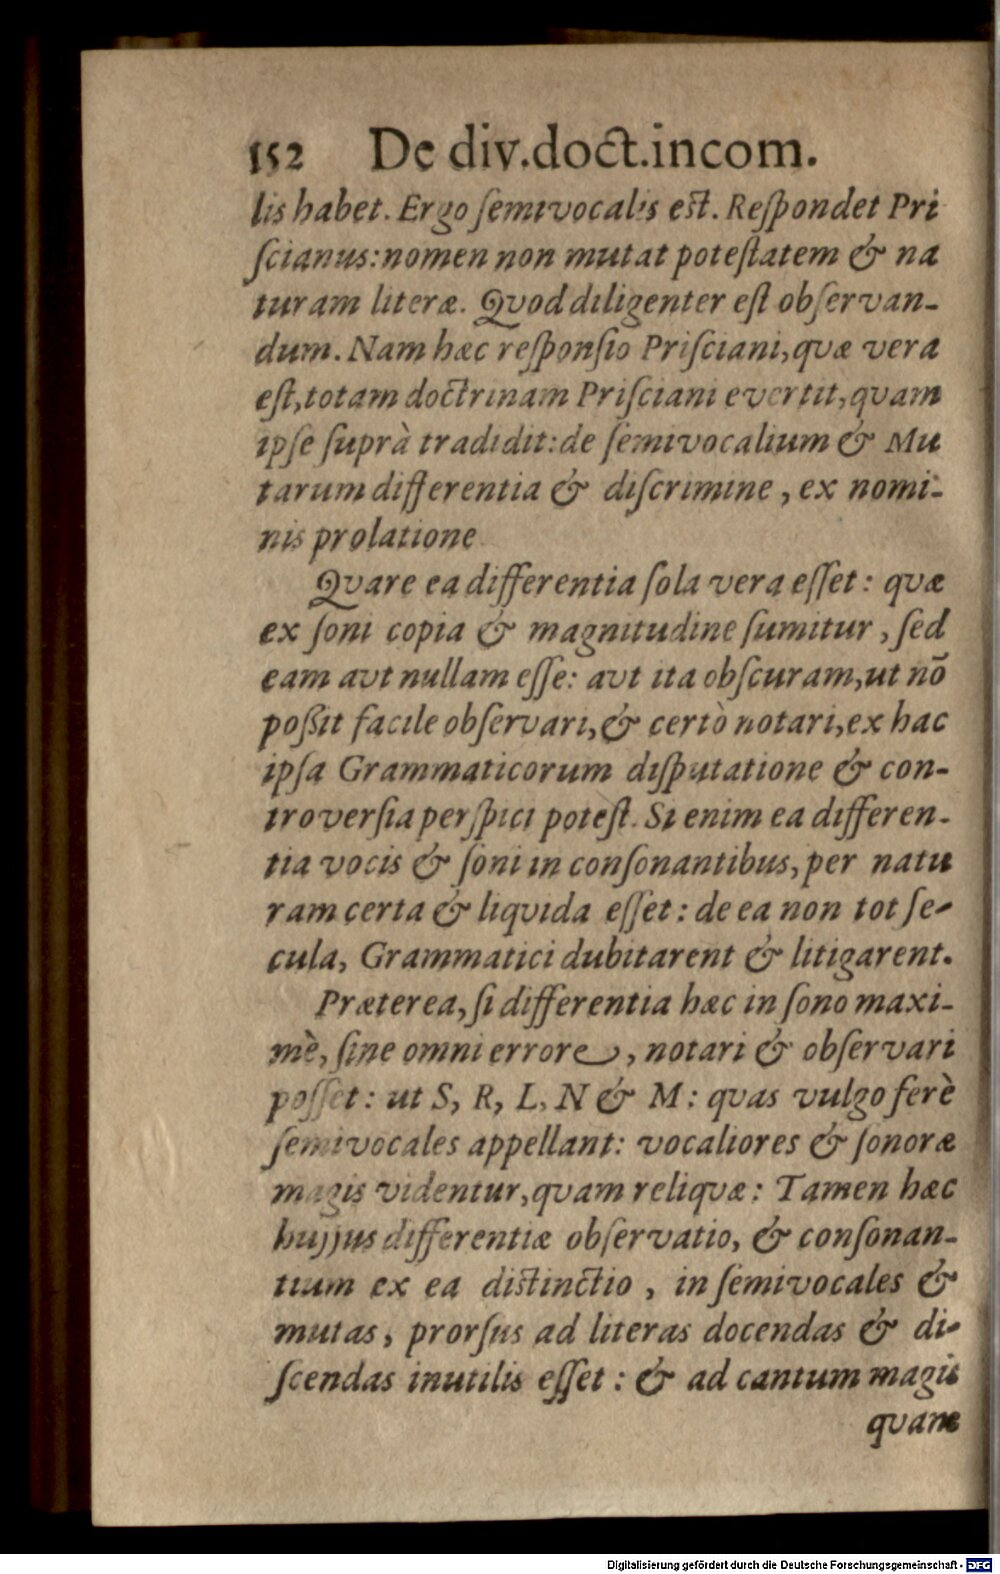 152 De div.doct.incom.
lis habet. Ergo ſemivocalis est. Reſpondet Pri
ſcianus:nomen non mutat poteſtatem & na
turam literæ. Qvod diligenter eſt obſervan-
dum. Nam hæc reſponſio Priſciani,qvæ vera
eſt,totam doctrinam Priſciani evertit,qvam
ipſe ſuprà tradidit:de ſemivocalium & Mu
tarum differentia & diſcrimine, ex nomi-
nis prolatione
Qvare ea differentia ſola vera eſſet: qvæ
ex ſoni copia & magnitudine ſumitur, ſed
eam avt nullam eſſe: avt ita obſcuram,ut nō
poßit facile obſervari,& certò notari,ex hac
ipſa Grammaticorum diſputatione & con-
troverſia perſpici poteſt. Si enim ea differen-
tia vocis & ſoni in conſonantibus,per natu
ram certa & liqvida eſſet: de ea non tot ſe-
cula, Grammatici dubitarent & litigarent.
Præterea,ſi differentia hæc in ſono maxi-
mè, ſine omni errore, notari & obſervari
poſſet: ut S, R, L, N & M: qvas vulgo ferè
ſemivocales appellant: vocaliores & ſonoræ
magis videntur,qvam reliqvæ: Tamen hæc
hujjus differentiæ obſervatio, & conſonan-
tium ex ea distinctio, in ſemivocales &
mutas, prorſus ad literas docendas & di-
ſcendas inutilis eſſet: & ad cantum magis
qvam
Digitalisierung gefördert durch die Deutsche Forschungsgemeinschaft - DFG